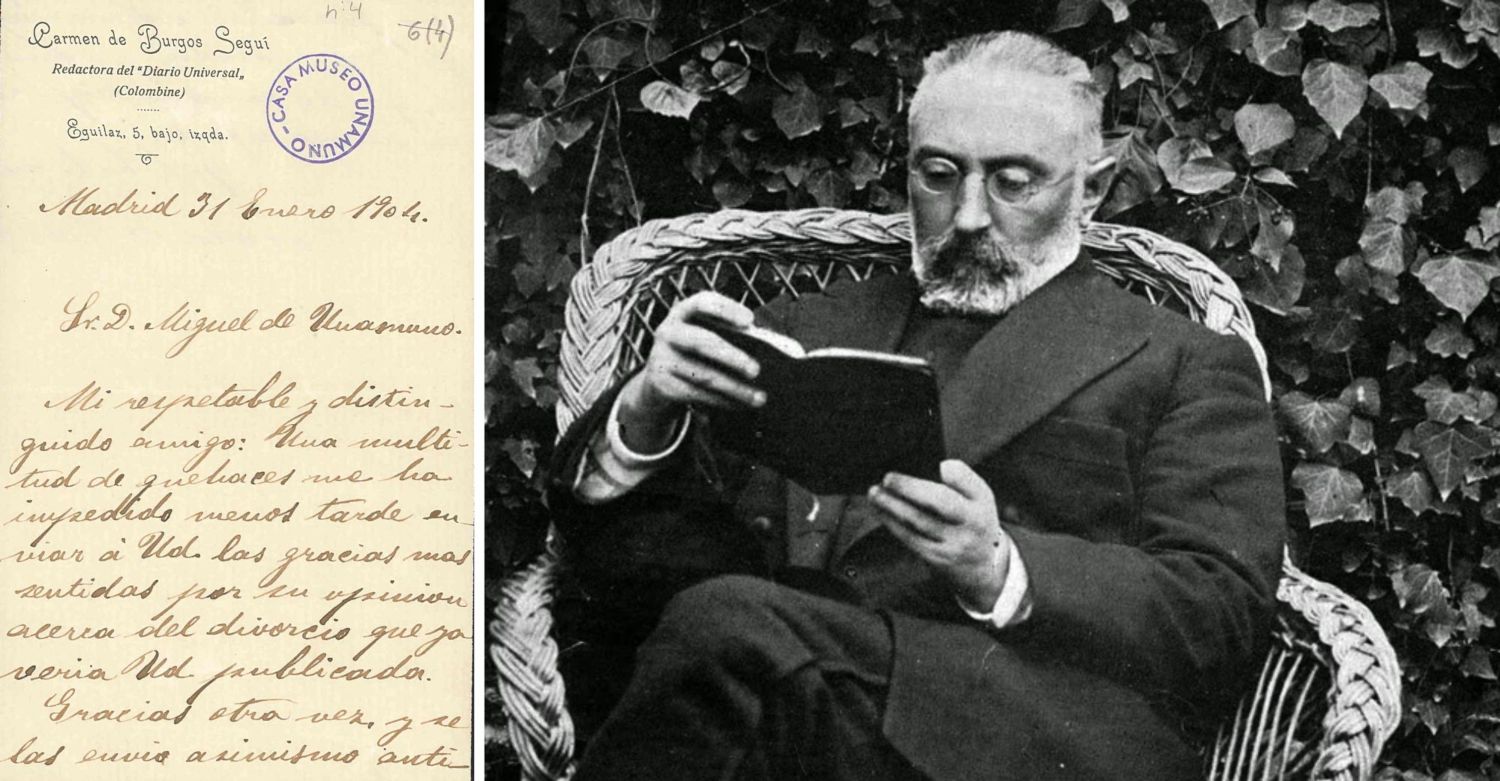 nº 4
6(4)
Carmen de Burgos Seguí
Redactora del "Diario Universal„
(Colombine)
Eguilaz, 5, bajo, izqda.
CASA MUSEO UNAMUNO -
Madrid 31 Enero 1904.
Sr. D. Miguel de Unamuno.
Mi respetable y distin-
guido amigo: Una multi-
tud de quehaces me ha
impedido menos tarde en-
viar á Ud. las gracias mas
sentidas por su opinion
acerca del divorcio que ya
veria Ud. publicada.
Gracias otra vez, y se
las envio asimismo anti-